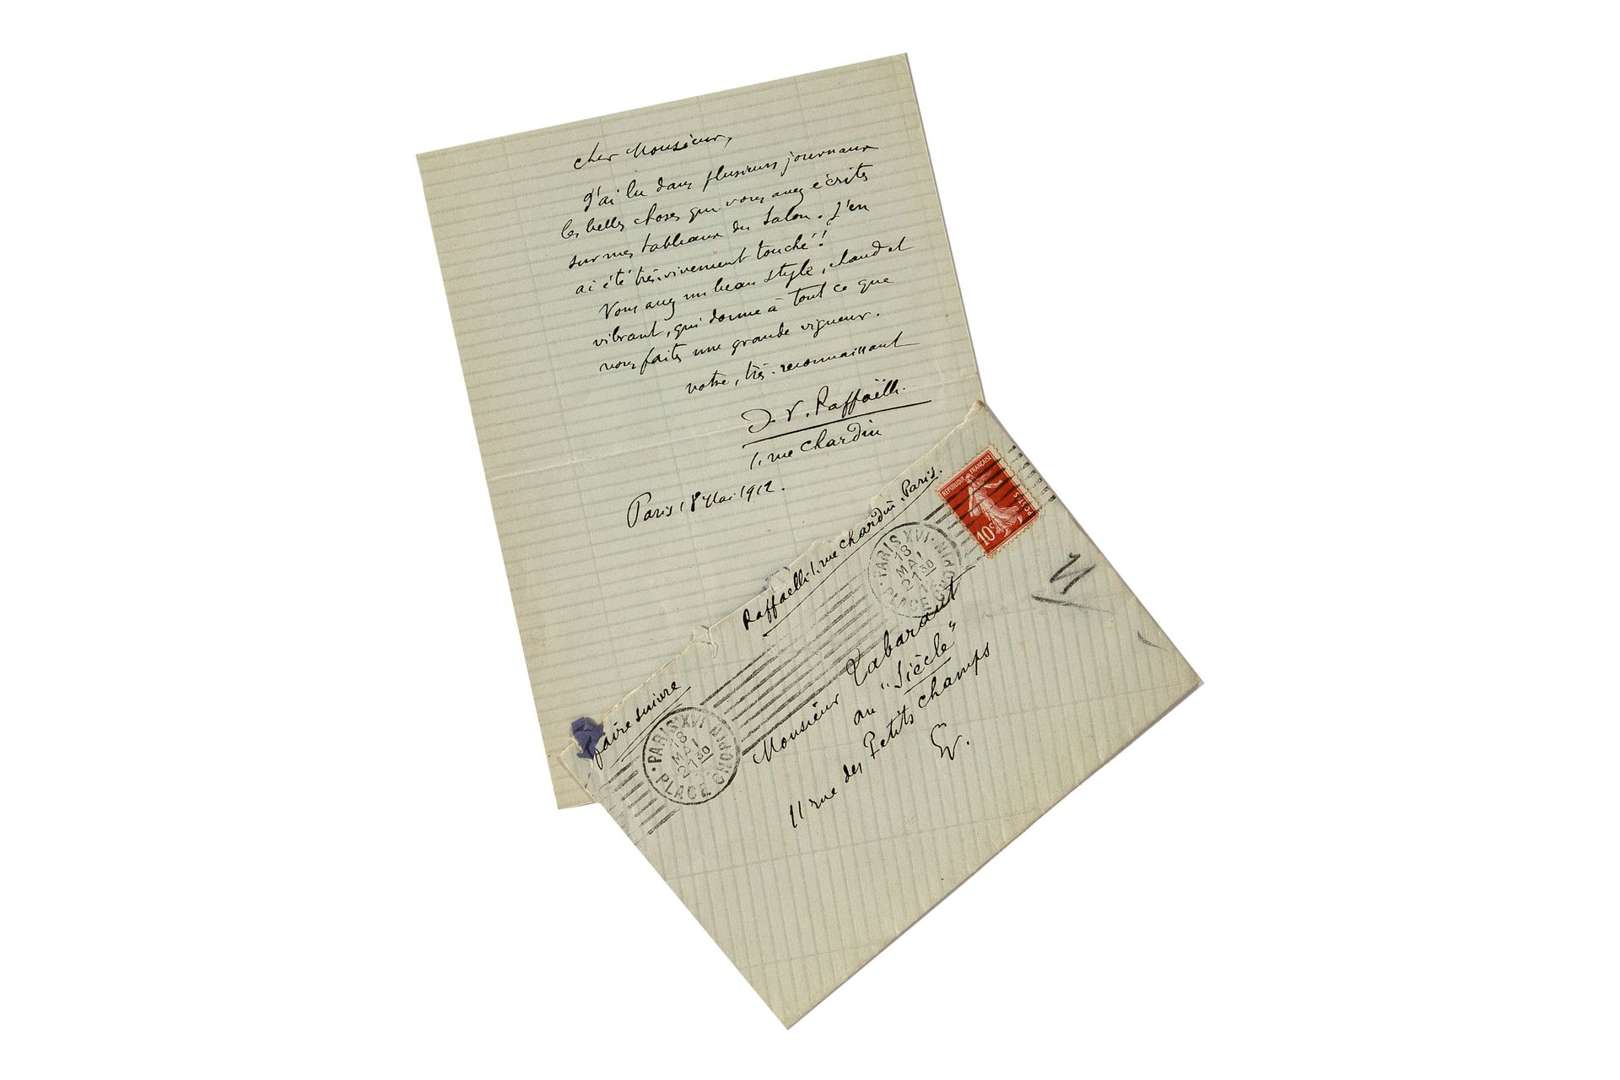 cher Monsieur,
J'ai lu dans plusieurs journaux
les belles choses que vous avez écrites
sur mes tableaux du Salon. J'en
ai été très vivement touché!
Vous avez un beau style, chaud et
vibrant, qui donne à tout ce que
vous faites une grande vigueur.
votre, très-reconnaissant
J. F. Raffaëlli.
1, rue Chardin
Paris 18 Mai 1912.
Raffaëlli 1, rue Chardin, Paris.
faire suivre
REPUBLIQUE FRANÇAISE
POSTES
10c
PARIS XVI
18 - 
MAI
21 30
PLACE CHOPIN
PARIS XVI
18 - 
MAI
21 30
PLACE CHOPIN
Monsieur Tabarant
au "Siècle"
11 rue des Petits Champs
EV.